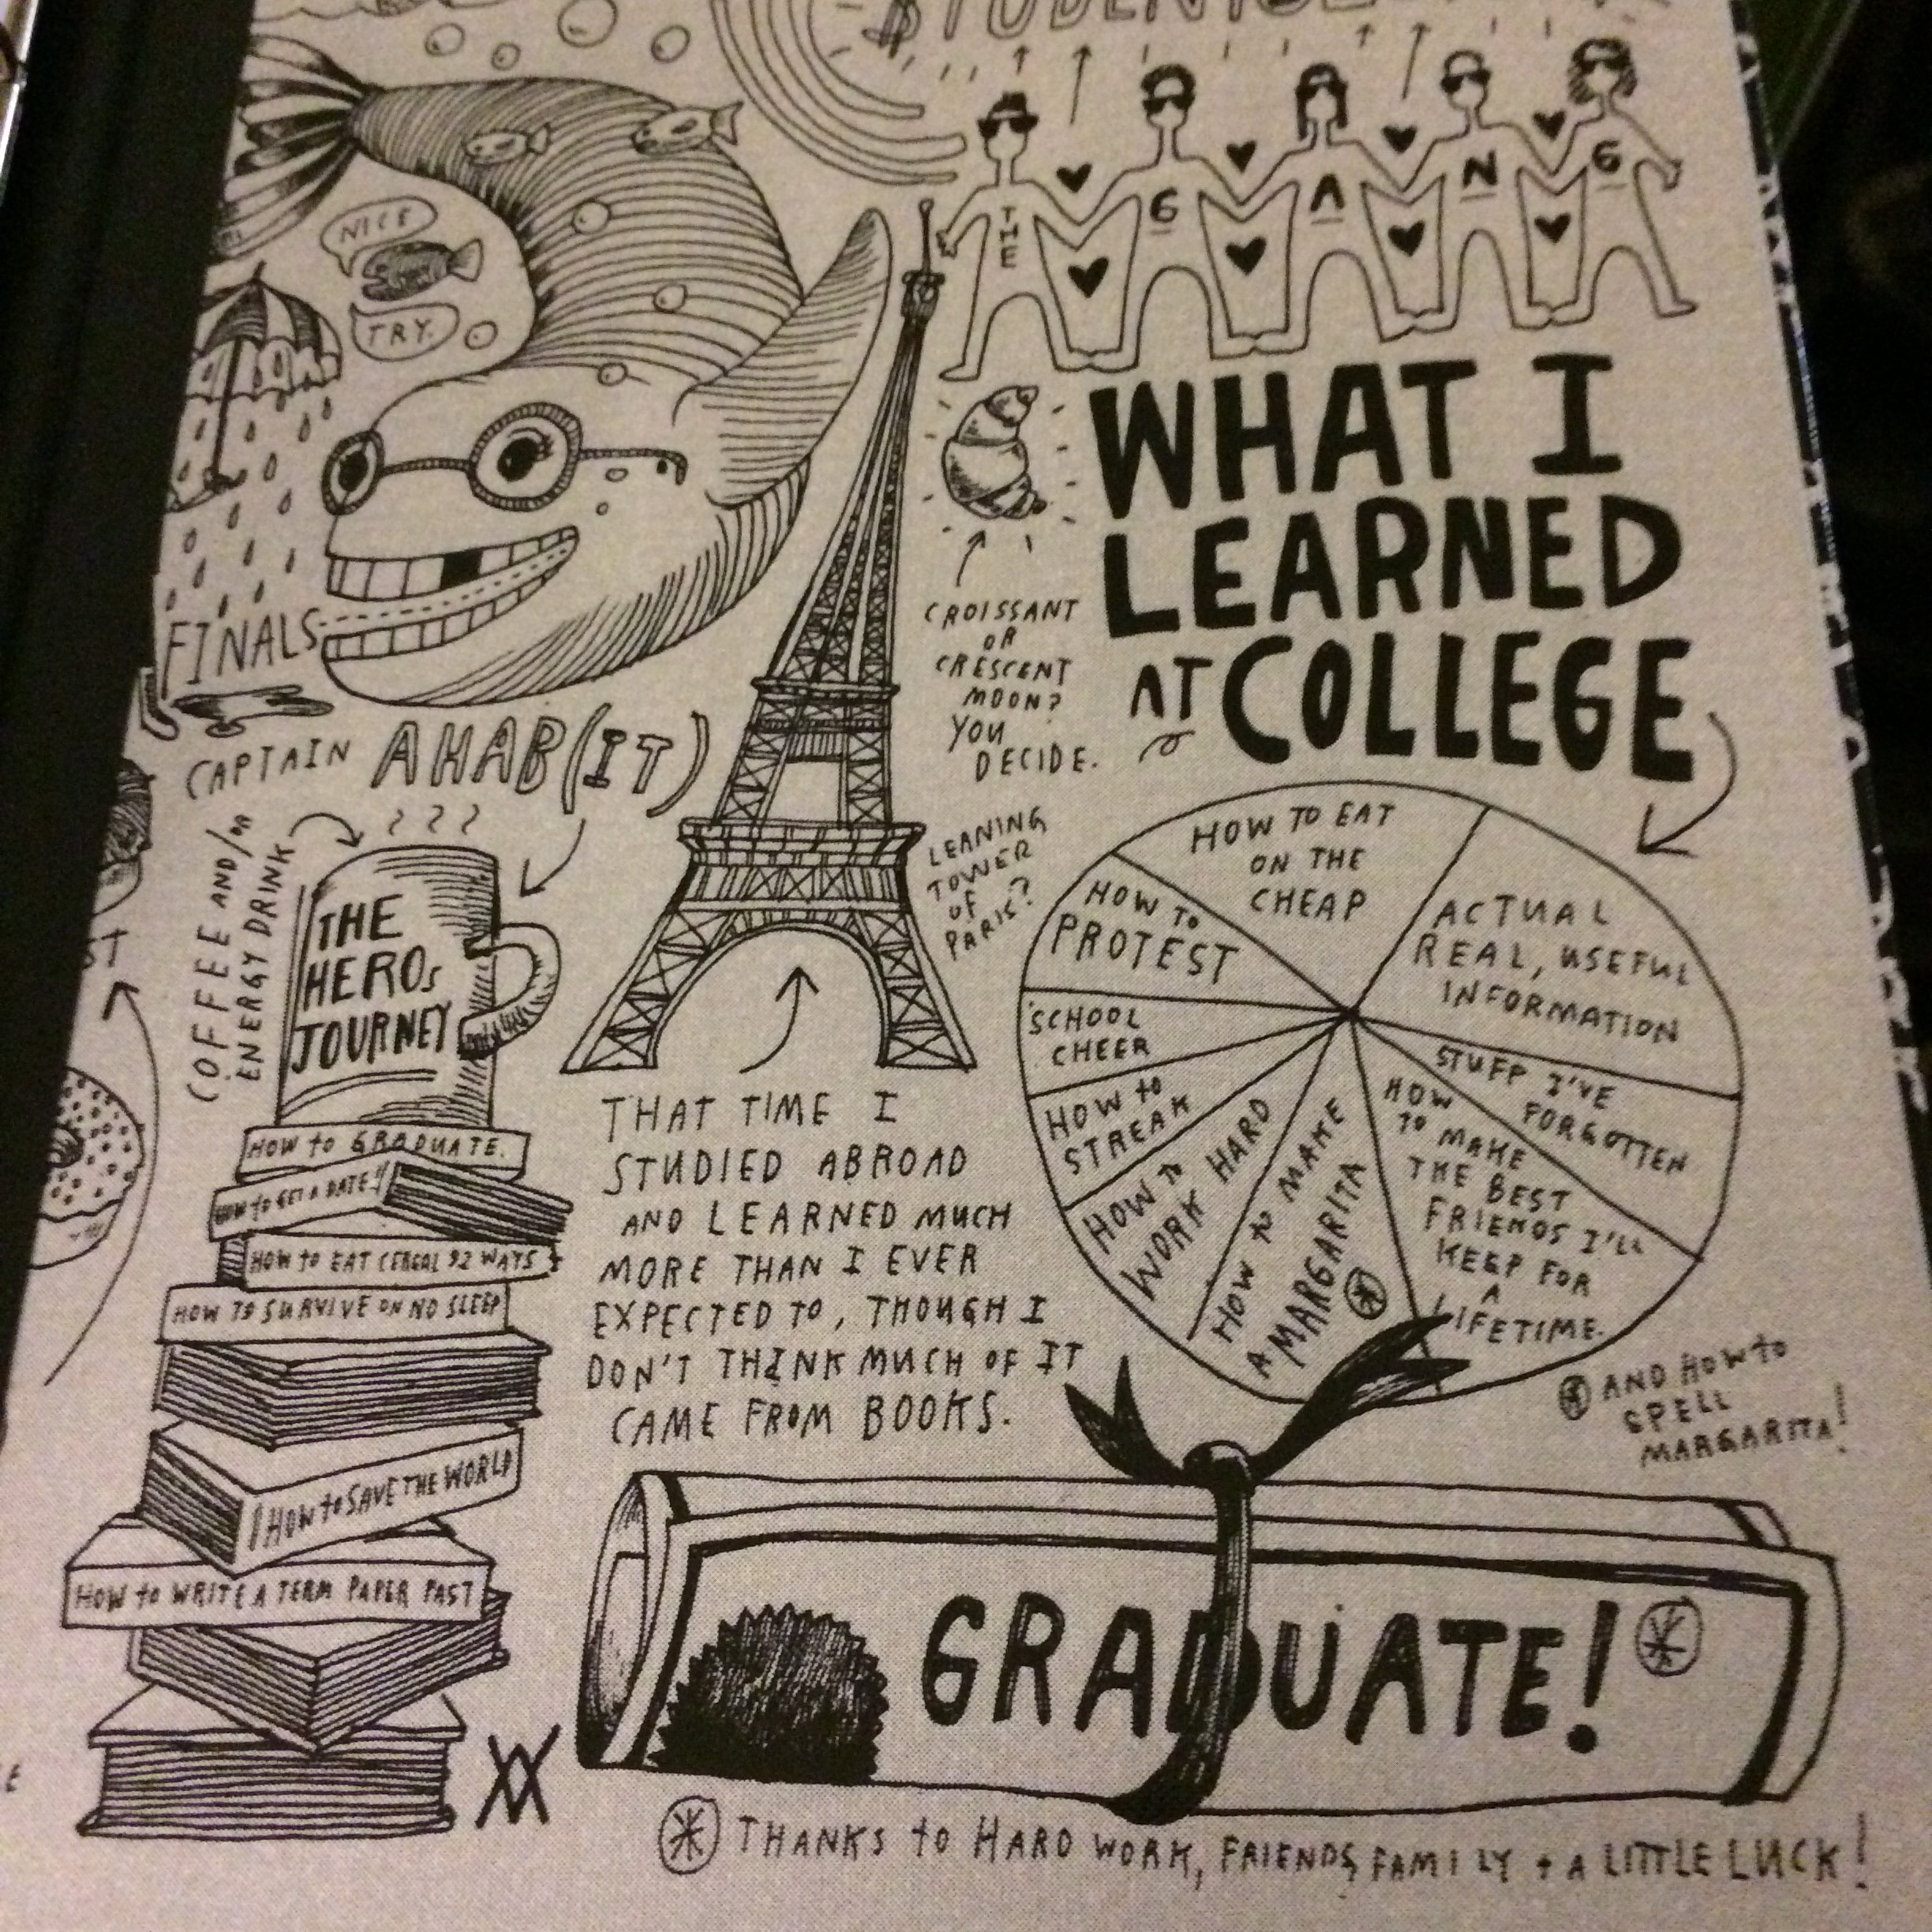 NICE
TRY.
THE
G A N G
WHAT I
LEARNED
AT COLLEGE
CROISSANT
OR
CRESCENT
MOON?
YOU
DECIDE.
FINALS
CAPTAIN AHAB(IT)
COFFEE AND/OR
ENERGY DRINK
THE
HEROS
JOURNEY
LEANING
TOWER
OF
PARIS?
HOW TO EAT
ON THE
CHEAP
ACTUAL
REAL, USEFUL
INFORMATION
STUFF I'VE
FORGOTTEN
HOW
TO MAKE
THE BEST
FRIENDS I'LL
KEEP FOR
A
LIFETIME.
HOW TO MAKE
A MARGARITA
HOW TO
WORK HARD
HOW TO
STREAK
SCHOOL
CHEER
HOW TO
PROTEST
AND HOW TO
SPELL
MARGARITA!
HOW TO GRADUATE.
HOW TO GET A DATE!!
HOW TO EAT CEREAL 92 WAYS
HOW TO SURVIVE ON NO SLEEP
HOW TO SAVE THE WORLD
HOW TO WRITE A TERM PAPER FAST
THAT TIME I
STUDIED ABROAD
AND LEARNED MUCH
MORE THAN I EVER
EXPECTED TO, THOUGH I
DON'T THINK MUCH OF IT
CAME FROM BOOKS.
GRADUATE!
THANKS TO HARD WORK, FRIENDS, FAMILY + A LITTLE LUCK!